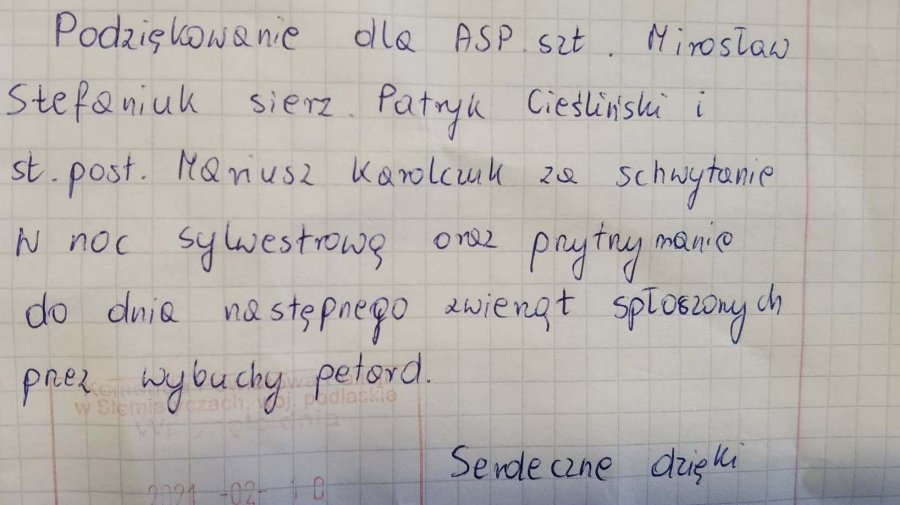 Podziękowanie dla ASP. szt. Mirosław
Stefaniuk sierz. Patryk Cieśliński i
st. post. Mariusz Karolczuk za schwytanie
w noc sylwestrową oraz przytrzymanie
do dnia następnego zwierząt spłoszonych
przez wybuchy petard.
w Siemiatyczach, woj. podlaskie
2021 -02- 10
Serdeczne dzięki